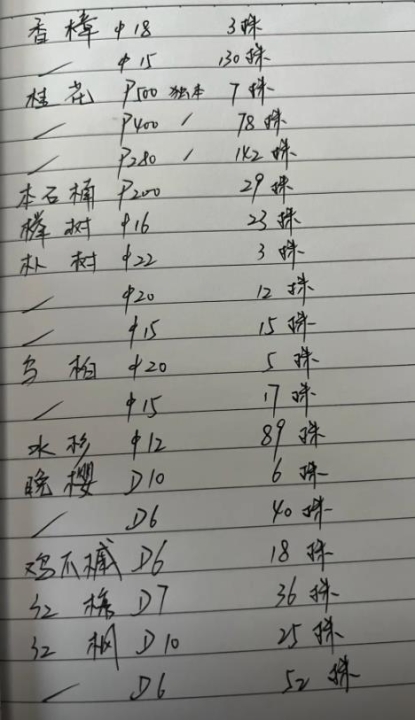 香樟 φ18 3株
／ φ15 130株
桂花 P500 独本 7株
／ P400 ／ 78株
／ P280 ／ 142株
本石楠 P200 29株
榉树 φ16 23株
朴树 φ22 3株
／ φ20 12株
／ φ15 15株
乌桕 φ20 5株
／ φ15 17株
水杉 φ12 89株
晚樱 D10 6株
／ D6 40株
鸡爪槭 D6 18株
红梅 D7 36株
红枫 D10 25株
／ D6 52株